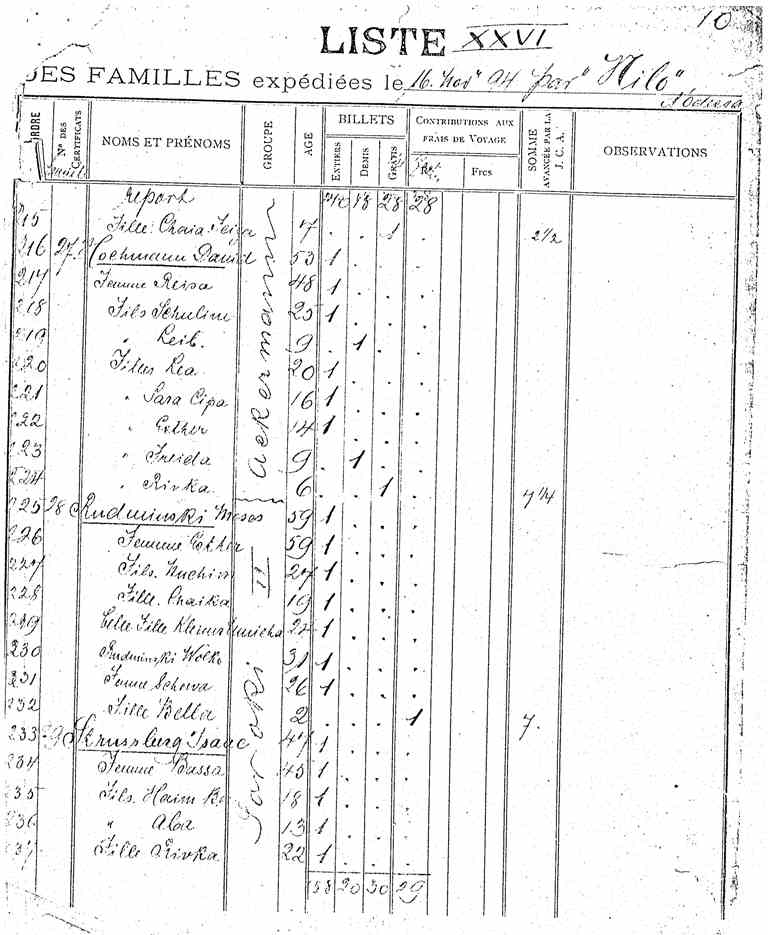 10
LISTE XXVI
DES FAMILLES expédiées le 16 Nov 94 par "Nilo"
ORDRE Nos DES CERTIFICATS NOMS ET PRÉNOMS GROUPE AGE BILLETS ENTIERS DEMIS GRATIS CONTRIBUTIONS AUX FRAIS DE VOYAGE Frcs SOMME AVANCÉE PAR LA J. C. A. OBSERVATIONS
report 18 28 28
215 Fille Chaia 7 1 2 1/2
216 27 Hochmann David 53 1
217 Femme Reisa 48 1
218 Fils Schulim 25 1
219 " Leib 9 1
220 Filles Lea 20 1
221 " Sara Cipa 16 1
222 " Esther 14 1
223 " Freida 9 1
224 " Rivka 6 1 7 1/4
Ackermann
225 28 Rudminski Moses 59 1
226 Femme Esther 59 1
227 Fils Nuchim 27 1
228 Fille Chaika 19 1
229 Belle Fille 24 1
230 Rudminski Wolko 31 1
231 Femme Scheva 26 1
232 Fille Bella 2 1 7
233 29 Strussberg Isaac 47 1
234 Femme Bassa 45 1
235 Fils Haim Ber 18 1
236 " Aba 13 1
237 Fille Rivka 22 1
Soroki II
58 20 30 29